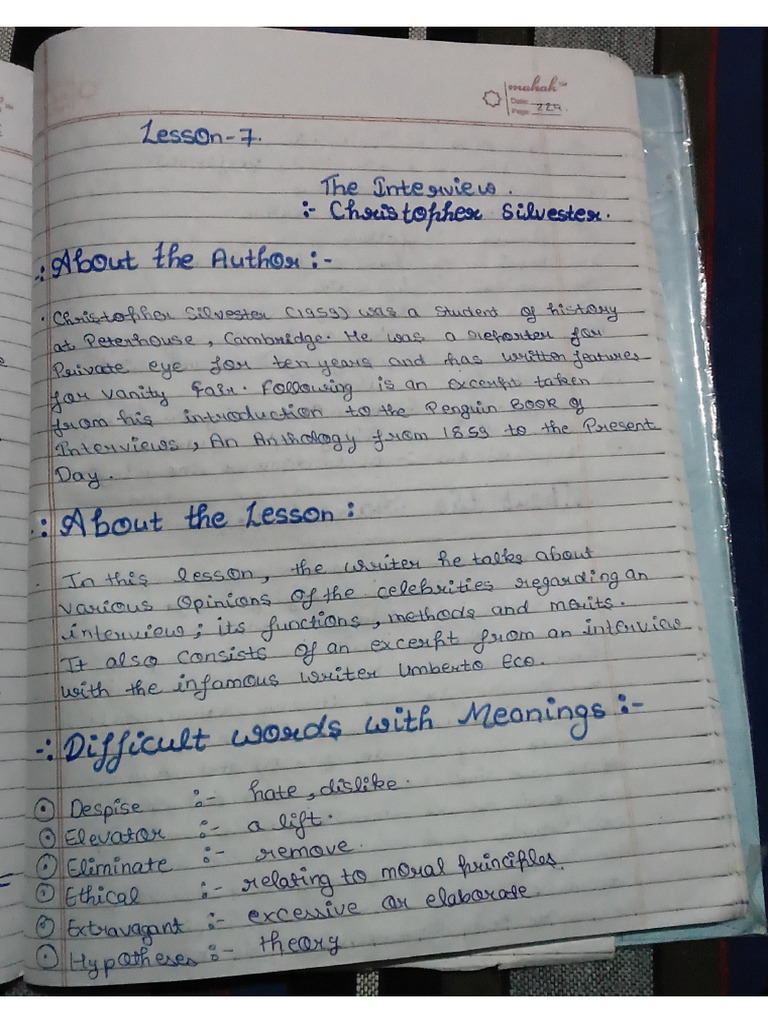 mahak
Date:
Page: 229.
Lesson-7.
The Interview.
:- Christopher Silvester.
About the Author :-
Christopher Silvester (1959) was a student of history
at Peterhouse, Cambridge. He was a reporter for
Private eye for ten years and has written features
for vanity fair. Following is an excerpt taken
from his introduction to the Penguin Book of
Interviews, An Anthology from 1859 to the Present
Day.
About the Lesson :
In this lesson, the writer he talks about
various opinions of the celebrities regarding an
interview; its functions, methods and merits.
It also consists of an excerpt from an interview
with the infamous writer Umberto Eco.
Difficult words with Meanings :-
Despise :- hate, dislike.
Elevator :- a lift.
Eliminate :- remove.
Ethical :- relating to moral principles.
Extravagant :- excessive or elaborate.
Hypotheses :- theory